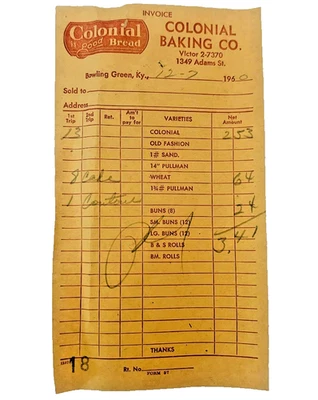 INVOICE
Colonial
is Good Bread
COLONIAL
BAKING CO.
VIctor 2-7370
1349 Adams St.
Bowling Green, Ky., 12-7 1960
Sold to
Address
1st Trip 2nd Trip Ret. Am't to pay for VARIETIES Net Amount
13 COLONIAL 2 53
OLD FASHION
1# SAND.
14" PULLMAN
8 Cake WHEAT 64
1½# PULLMAN
1 BUNS (8) 24
SM. BUNS (12)
LG. BUNS (12) 3,41
B & S ROLLS
BM. ROLLS
THANKS
18
Rt. No. FORM 87